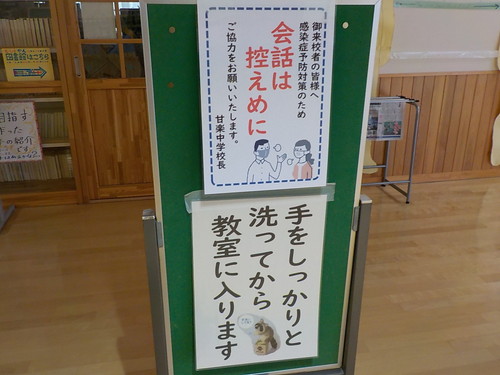 御来校者の皆様へ
感染症予防対策のため
会話は
控えめに
ご協力をお願いいたします。
甘楽中学校長
手をしっかりと
洗ってから
教室に入ります